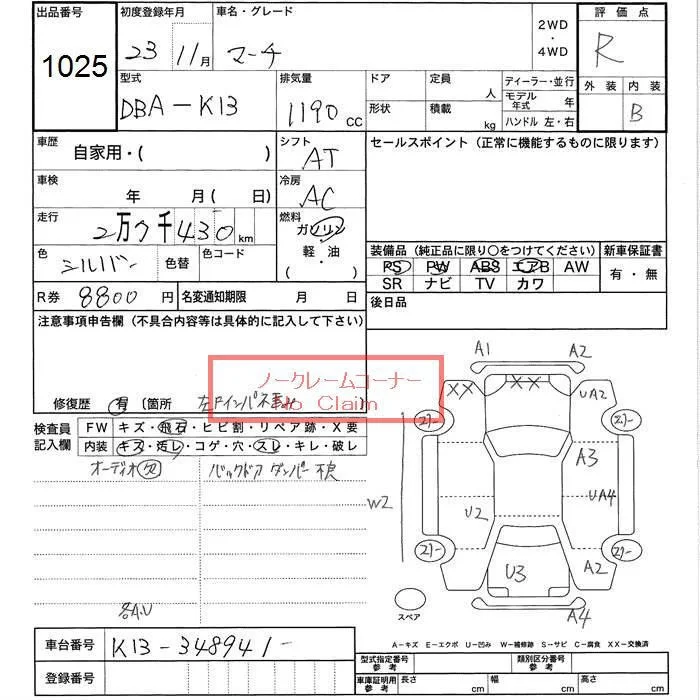 出品番号
1025
初度登録年月
23 11月
車名・グレード
マーチ
2WD
・
4WD
評価点
R
外装 内装
B
型式
DBA-K13
排気量
1190 CC
ドア
定員
人
形状
積載
kg
ディーラー・並行
モデル年式 年
ハンドル 左・右
車歴
自家用・( )
シフト
AT
セールスポイント(正常に機能するものに限ります)
車検
年 月( 日)
冷房
AC
走行
2万7千430km
燃料
ガソリン
軽・油
( )
色
シルバー
色替
色コード
装備品(純正品に限り○をつけてください)
新車保証書
PS PW ABS エアB AW
SR ナビ TV カワ
有・無
R券 8800円
名変通知期限 月 日
後日品
注意事項申告欄(不具合内容等は具体的に記入して下さい)
ノークレームコーナー
No Claim
修復歴 有 〔箇所 左Fインパネ
検査員
記入欄
FW キズ・飛石・ヒビ割・リペア跡・X要
内装 キズ・汚レ・コゲ・穴・スレ・キレ・破レ
オーディオ欠
バックドアダンパー不良
各A.U
A1 A2
XX XX UA2
21- 21-
A3
W2
U2 UA4
21- 21-
U3 A2
A4
スペア
A-キズ E-エクボ U-凹み W-補修跡 S-サビ C-腐食 XX-交換済
車台番号 K13-348941-
登録番号
型式指定番号
参考
類別区分番号
参考
車庫証明用
参考
長さ cm
幅 cm
高さ cm